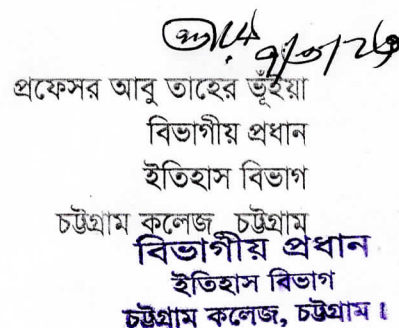 প্রফেসর আবু তাহের ভূঁইয়া
বিভাগীয় প্রধান
ইতিহাস বিভাগ
চট্টগ্রাম কলেজ চট্টগ্রাম
বিভাগীয় প্রধান
ইতিহাস বিভাগ
চট্টগ্রাম কলেজ, চট্টগ্রাম।